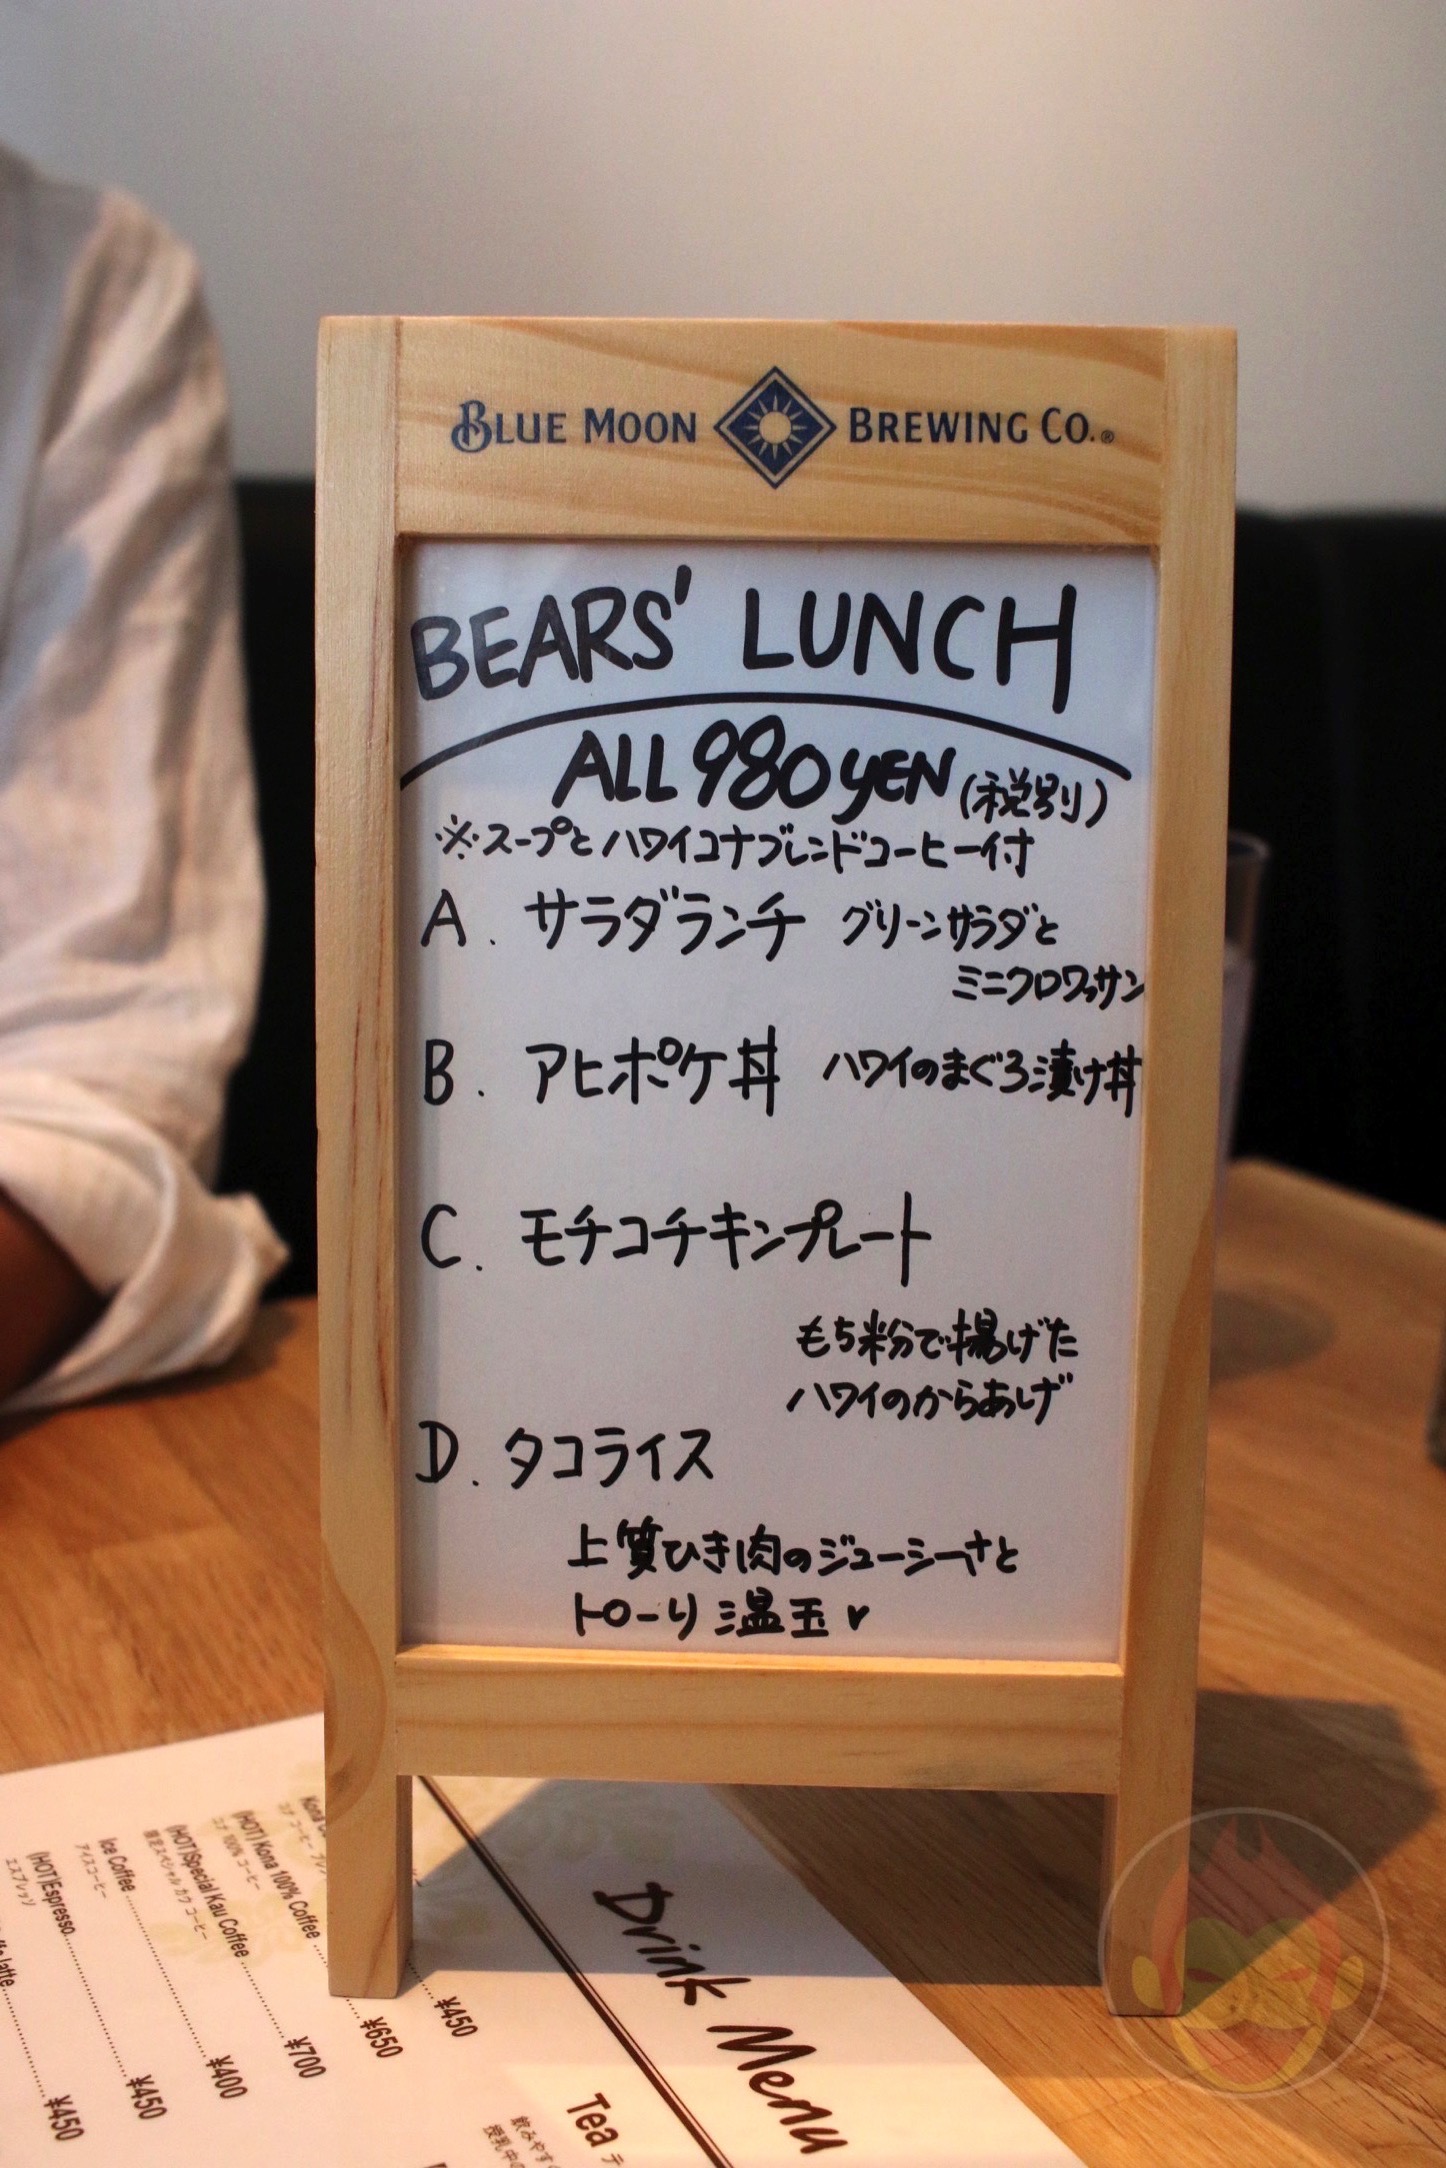 BLUE MOON BREWING CO.®
BEARS' LUNCH
ALL 980 YEN (税別)
※スープとハワイコナブレンドコーヒー付
A. サラダランチ グリーンサラダと
ミニクロワッサン
B. アヒポケ丼 ハワイのまぐろ漬け丼
C. モチコチキンプレート
もち粉で揚げた
ハワイのからあげ
D. タコライス
上質ひき肉のジューシーさと
トローり温玉♥
Drink Menu
Kona
¥450
(HOT) Kona 100% Coffee ¥650
コナ 100% コーヒー
(HOT)Special Kau Coffee ¥700
限定スペシャル カウ コーヒー
Ice Coffee ¥400
アイスコーヒー
(HOT)Espresso ¥450
エスプレッソ
latte ¥450
Tea テ